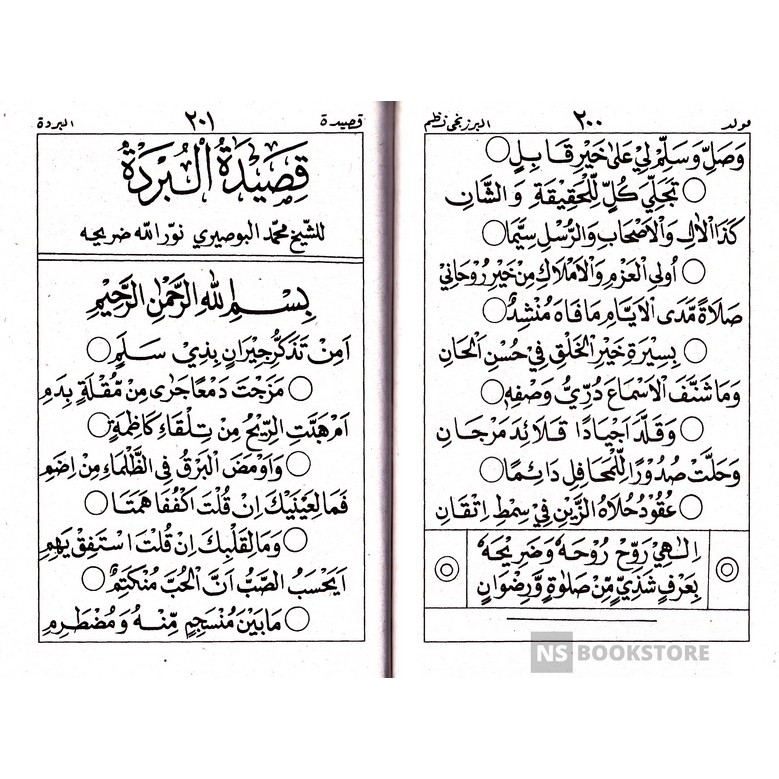 مولد ٢٠٠ البرزنجى نظم
وَصَلِّ وَسَلِّمْ لِيْ عَلٰى خَيْرِ قَابِلٍ
تَجَلِّيَ كُلٍّ لِّلْحَقِيْقَةِ وَالشَّانِ
كَذَا الْاٰلِ وَالْاَصْحَابِ وَالرُّسْلِ سِيَّمَا
اُولِى الْعَزْمِ وَالْاَمْلَاكِ مِنْ خَيْرِ رُوْحَانِيْ
صَلَاةً مَّدَى الْاَيَّامِ مَا فَاهَ مُنْشِدٌ
بِسِيْرَةِ خَيْرِ الْخَلْقِ فِيْ حُسْنِ اَلْحَانِ
وَمَا شَنَّفَ الْاَسْمَاعَ دُرِّيُّ وَصْفِهٖ
وَقَلَّدَ اَجْيَادًا قَلَائِدَ مَرْجَانِ
وَحَلَّتْ صُدُوْرًا لِّلْمَحَافِلِ دَائِمًا
عُقُوْدُ حُلَاهُ الزَّيْنِ فِيْ سِمْطِ اِتْقَانِ
اِلٰهِيْ رَوِّحْ رُوْحَهٗ وَضَرِيْحَهٗ
بِعَرْفٍ شَذِيٍّ مِّنْ صَلٰوةٍ وَّرِضْوَانٍ
قصيدة ٢٠١ البردة
قَصِيْدَةُ الْبُرْدَةُ
للشيخ محمد البوصيري نوّر الله ضريحه
بِسْمِ اللهِ الرَّحْمٰنِ الرَّحِيْمِ
اَمِنْ تَذَكُّرِ جِيْرَانٍ بِذِيْ سَلَمٍ
مَزَجْتَ دَمْعًا جَرٰى مِنْ مُّقْلَةٍ بِدَمِ
اَمْ هَبَّتِ الرِّيْحُ مِنْ تِلْقَاءِ كَاظِمَةٍ
وَاَوْمَضَ الْبَرْقُ فِى الظَّلْمَاءِ مِنْ اِضَمِ
فَمَا لِعَيْنَيْكَ اِنْ قُلْتَ اكْفُفَا هَمَتَا
وَمَا لِقَلْبِكَ اِنْ قُلْتَ اسْتَفِقْ يَهِمِ
اَيَحْسَبُ الصَّبُّ اَنَّ الْحُبَّ مُنْكَتِمٌ
مَا بَيْنَ مُنْسَجِمٍ مِّنْهُ وَمُضْطَرِمِ
NS BOOKSTORE